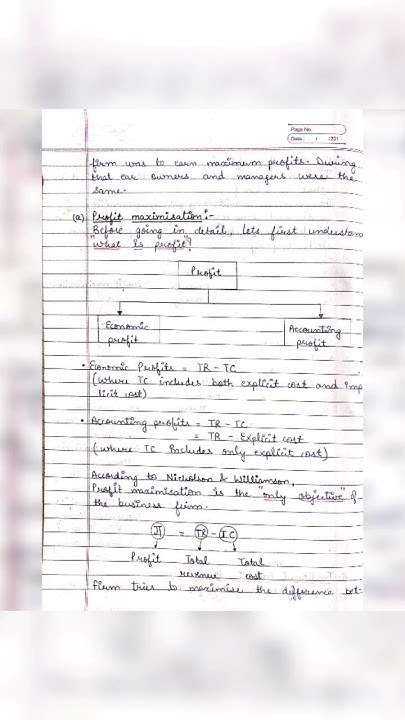 Page No.
Date / /201
firm was to earn maximum profits. During
that ear owners and managers were the
same.
(a) Profit maximisation:-
Before going in detail, lets first understan
"what is profit"?
Profit
Economic profit
Accounting profit
• Economic Profits = TR - TC
(where TC includes both explicit cost and imp
licit cost)
• Accounting profits = TR - TC
= TR - Explicit cost
(where TC Includes only explicit cost)
According to Nicholson & Williamson,
Profit maximisation is the "only objective" of
the business firm.
π = TR - TC
Profit Total Total
revenue cost
Firm tries to maximise the difference bet-